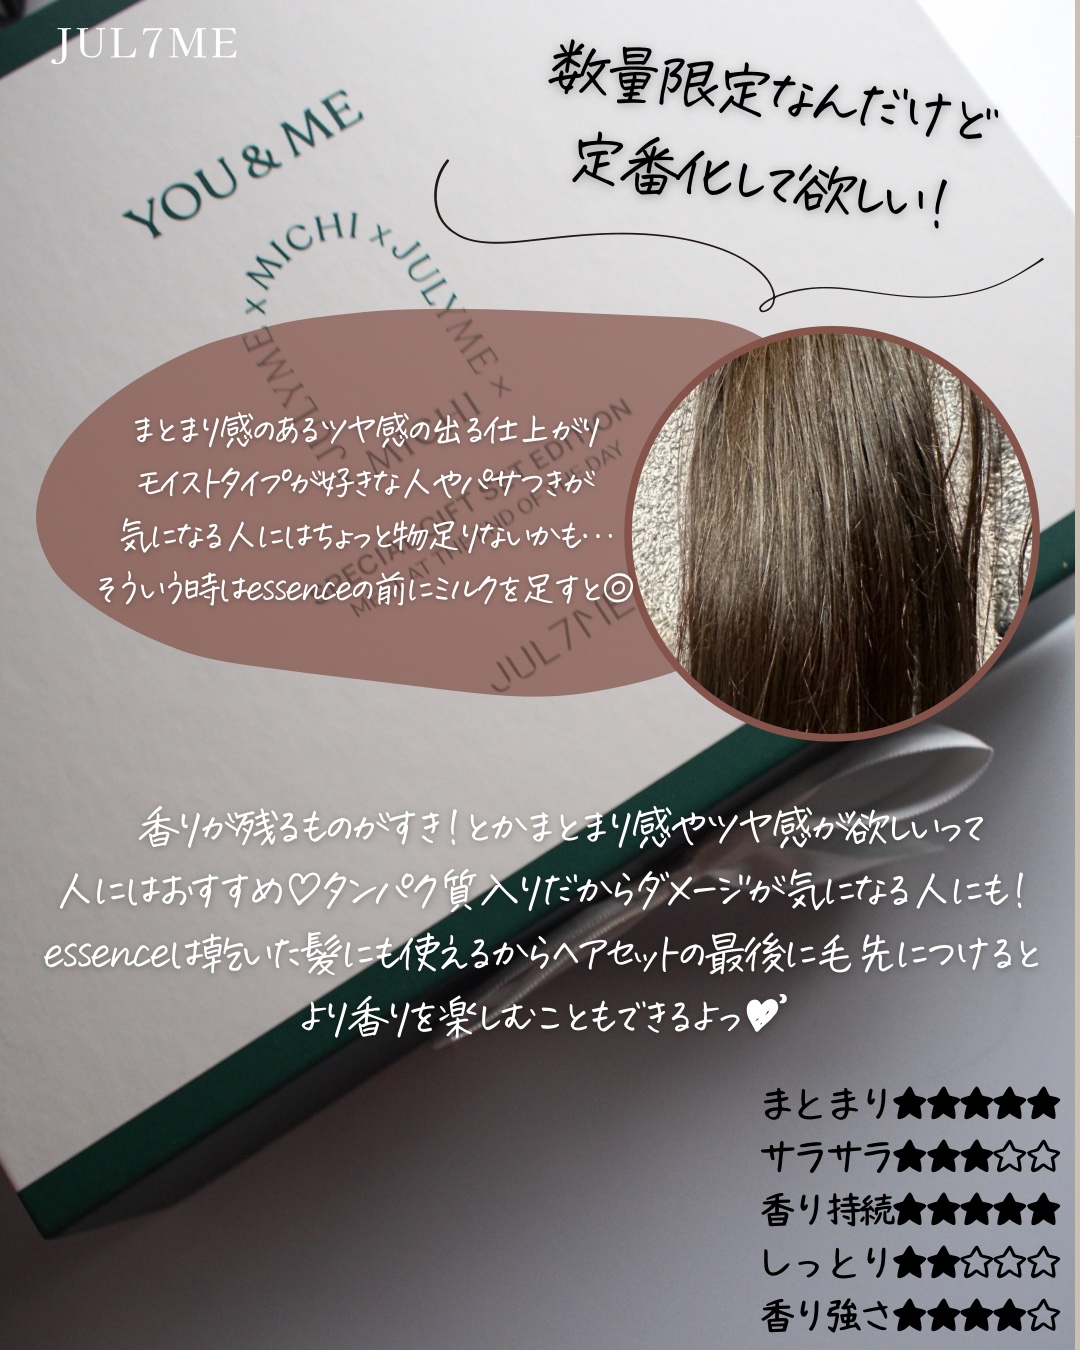 JUL7ME
数量限定なんだけど
定番化して欲しい！
YOU & ME
MICHI x JULYME x MICHI x JULYME x
SPECIAL GIFT SET EDITION
ME AT THE END OF THE DAY
JUL7ME
まとまり感のあるツヤ感の出る仕上がり
モイストタイプが好きな人やパサつきが
気になる人にはちょっと物足りないかも…
そういう時はessenceの前にミルクを足すと◎
香りが残るものがすき！とかまとまり感やツヤ感が欲しいって
人にはおすすめ♡タンパク質入りだからダメージが気になる人にも！
essenceは乾いた髪にも使えるからヘアセットの最後に毛先につけると
より香りを楽しむこともできるよっ♥
まとまり★★★★★
サラサラ★★★☆☆
香り持続★★★★★
しっとり★★☆☆☆
香り強さ★★★★☆